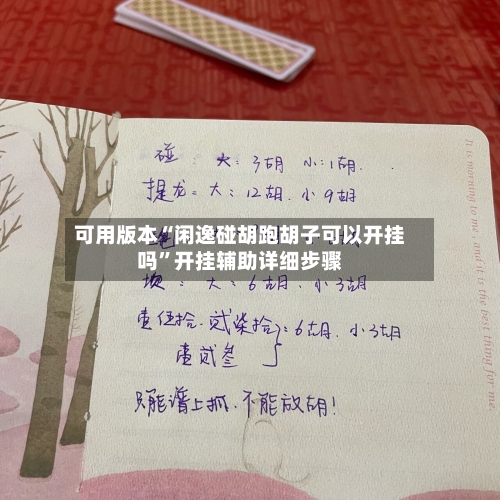 碰: 大:3胡 小:1胡.
提龙=大:12胡.小9胡
可用版本“闲逸碰胡跑胡子可以开挂
吗”开挂辅助详细步骤
大:6胡.小3胡
壹伍拾.贰柒拾}:6胡.小3胡
壹贰叁
只能谱上抓.不能放胡!
It is morning to me; and it is the best thing for me